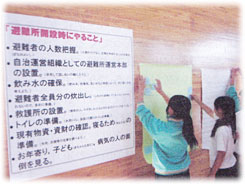 「避難所開設時にやること」
・避難者の人数把握。
・自治運営組織としての避難所運営本部
の設置。
・飲み水の確保。
・避難者全員分の炊出し。
・救護所の設置。
・トイレの準備。
・現有物資・資材の確認、寝るための
準備。
・お年寄り、子ども 病気の人の面
倒を見る。